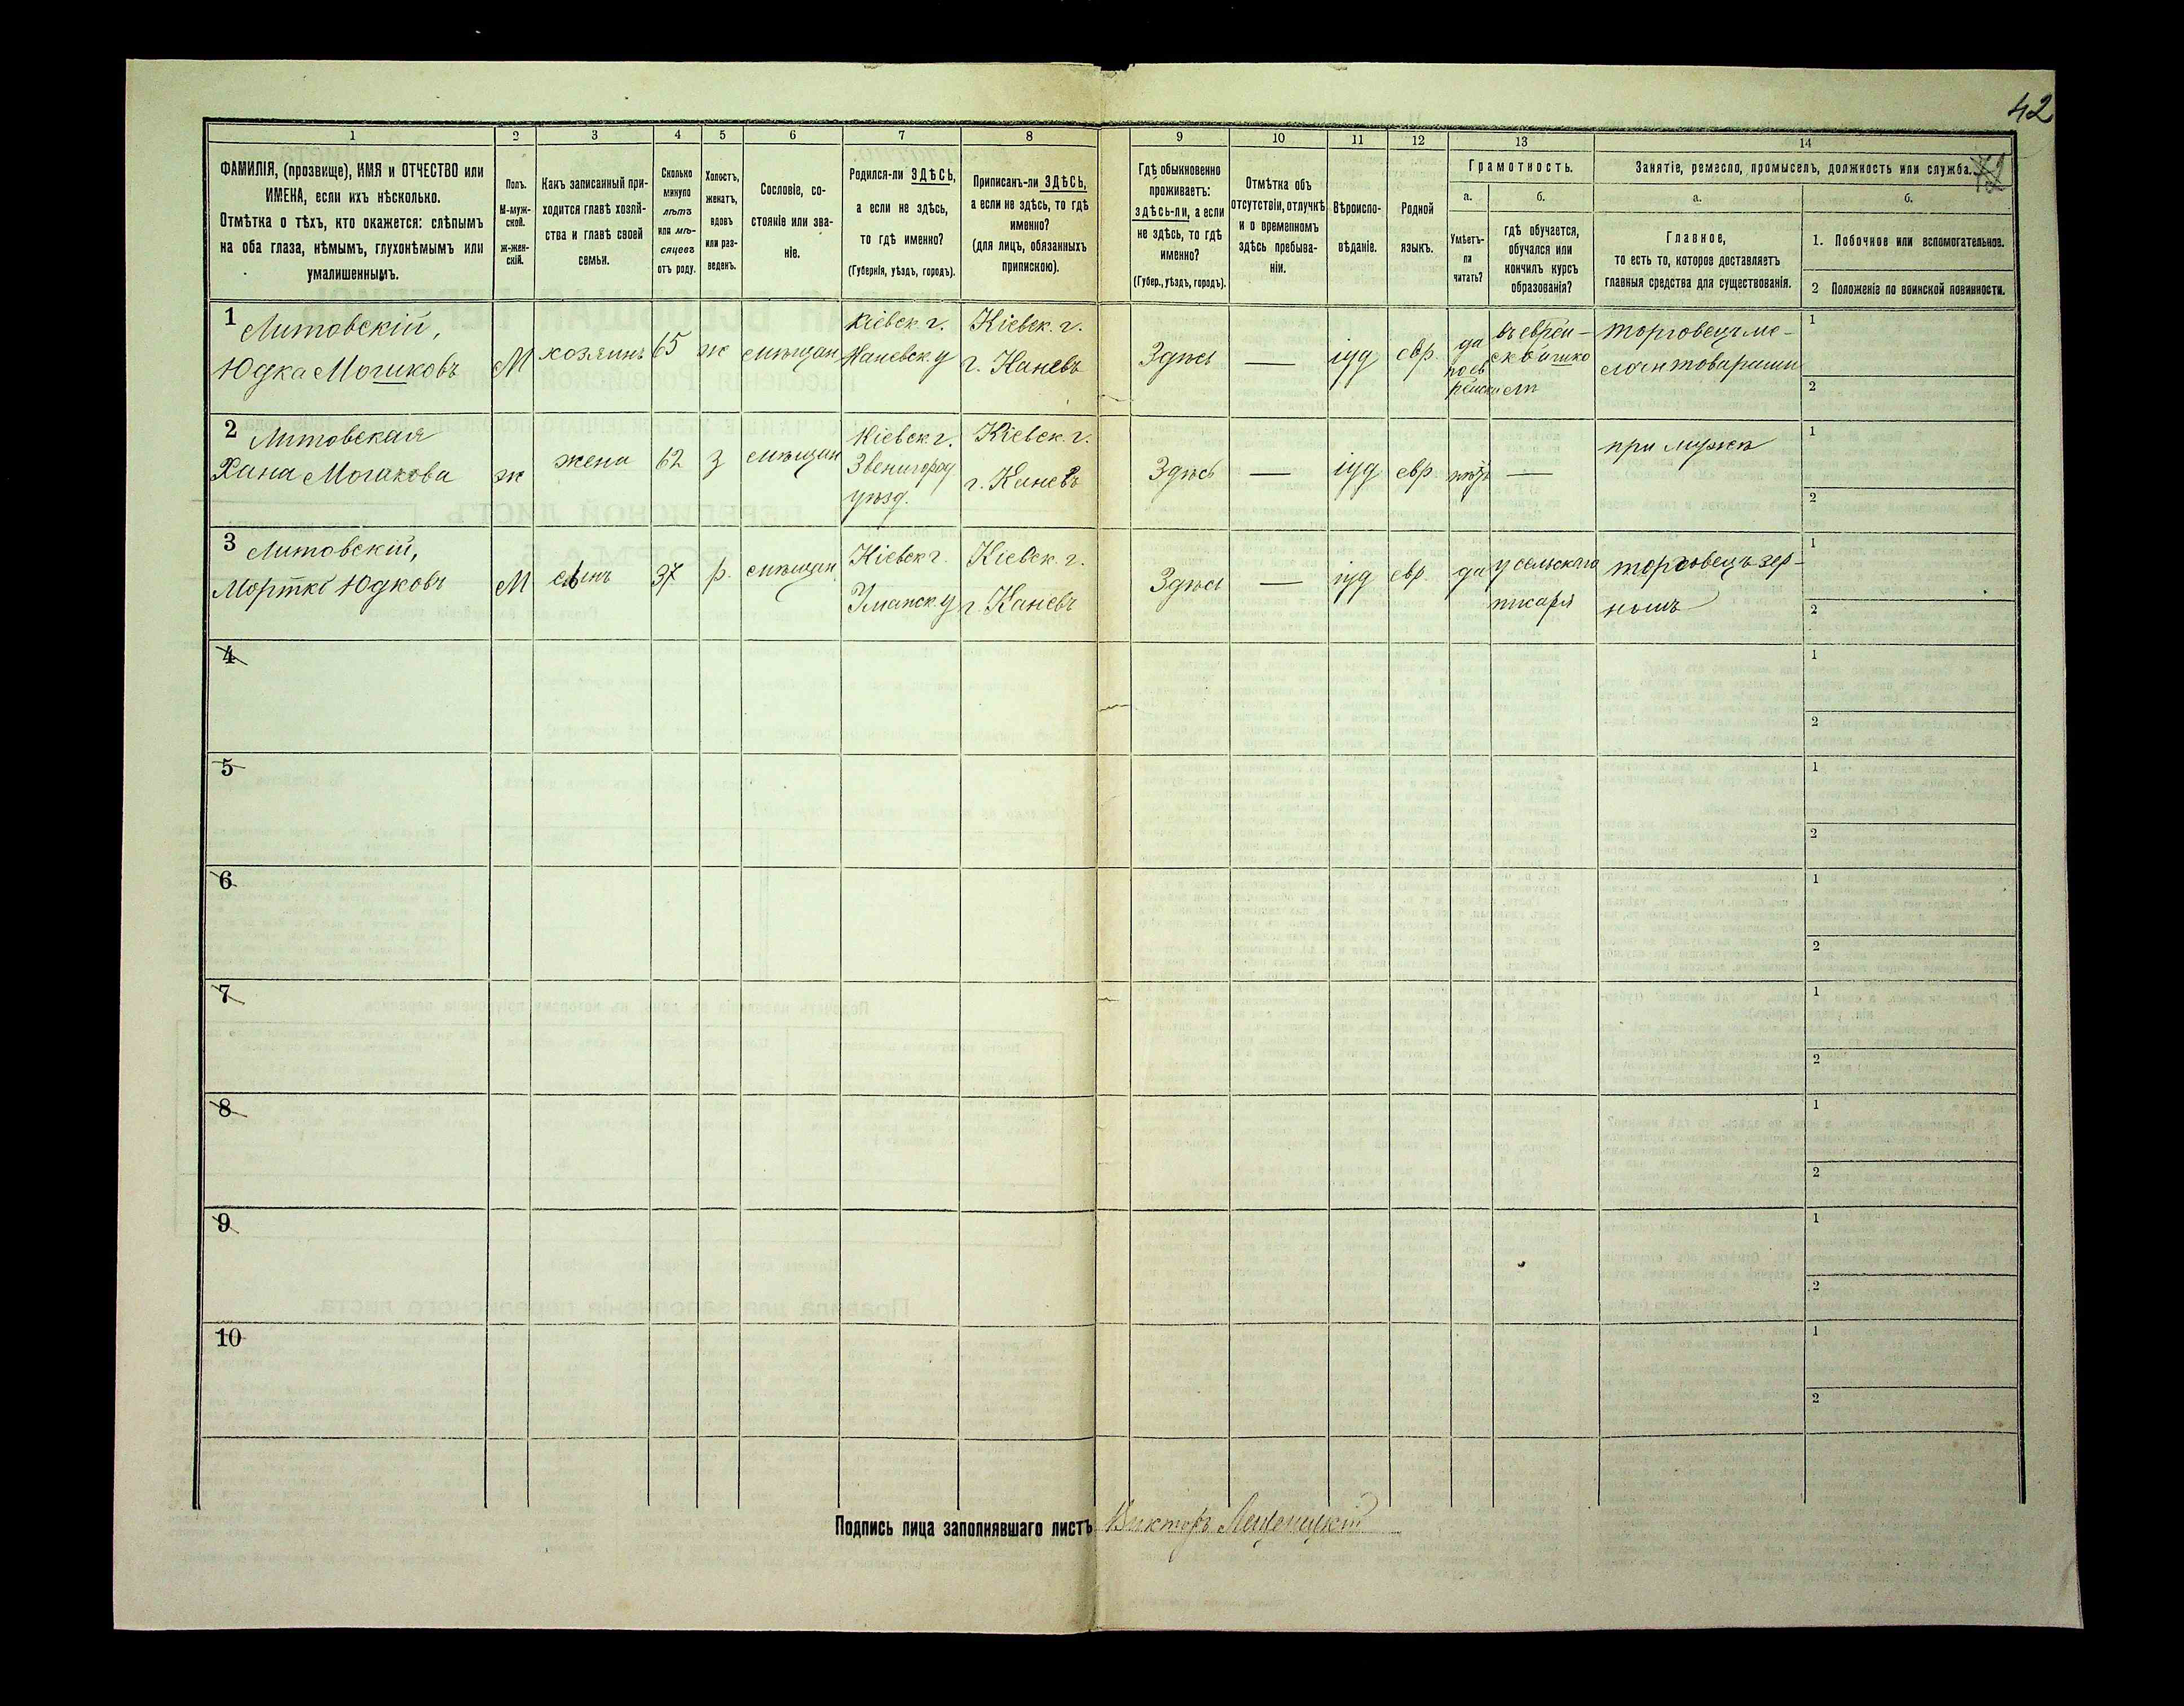 42
1 2 3 4 5 6 7 8 9 10 11 12 13 14
ФАМИЛІЯ, (прозвище), ИМЯ и ОТЧЕСТВО или
ИМЕНА, если ихъ нѣсколько.
Отмѣтка о тѣхъ, кто окажется: слѣпымъ
на оба глаза, нѣмымъ, глухонѣмымъ или
умалишеннымъ.
Полъ.
М-муж-
ской.
ж-жен-
скій.
Какъ записанный при-
ходится главѣ хозяй-
ства и главѣ своей
семьи.
Сколько
минуло
лѣтъ
или мѣ-
сяцевъ
отъ роду.
Холостъ,
женатъ,
вдовъ
или раз-
веденъ.
Сословіе, со-
стояніе или зва-
ніе.
Родился-ли ЗДѢСЬ,
а если не здѣсь,
то гдѣ именно?
(Губернія, уѣздъ, городъ).
Приписанъ-ли ЗДѢСЬ,
а если не здѣсь, то гдѣ
именно?
(для лицъ, обязанныхъ
припискою).
Гдѣ обыкновенно
проживаетъ:
здѣсь-ли, а если
не здѣсь, то гдѣ
именно?
(Губер., уѣздъ, городъ).
Отмѣтка объ
отсутствіи, отлучкѣ
и о временномъ
здѣсь пребыва-
ніи.
Вѣроиспо-
вѣданіе.
Родной
языкъ.
Грамотность.
а.
Умѣетъ-
ли
читать?
б.
гдѣ обучается,
обучался или
кончилъ курсъ
образованія?
Занятіе, ремесло, промыселъ, должность или служба.
а.
Главное,
то есть то, которое доставляетъ
главныя средства для существованія.
б.
1. Побочное или вспомогательное.
2 Положеніе по воинской повинности.
1 Литовскій,
Юдка Мошковъ
М
хозяинъ
65
ж
мѣщан
Кіевск. г.
Каневск. у
Кіевск. г.
г. Каневъ
Здѣсь
—
іуд
евр.
да
по ев
рейски
въ еврей-
ской шко
лѣ
торговецъ ме-
лочн товарами
1
2
2 Литовская
Хана Мошкова
ж
жена
62
з
мѣщан
Кіевск. г.
Звенигород
уѣзд.
Кіевск. г.
г. Каневъ
Здѣсь
—
іуд
евр.
нѣтъ
—
при мужѣ
1
2
3 Литовскій,
Мортко Юдковъ
М
сынъ
37
р.
мѣщан
Кіевск г.
Уманск. у
Кіевск. г.
г. Каневъ
Здѣсь
—
іуд
евр.
да
у сельскаго
писаря
торговецъ зер-
номъ
1
2
4
1
2
5
1
2
6
1
2
7
1
2
8
1
2
9
1
2
10
1
2
Подпись лица заполнявшаго листъ Викторъ